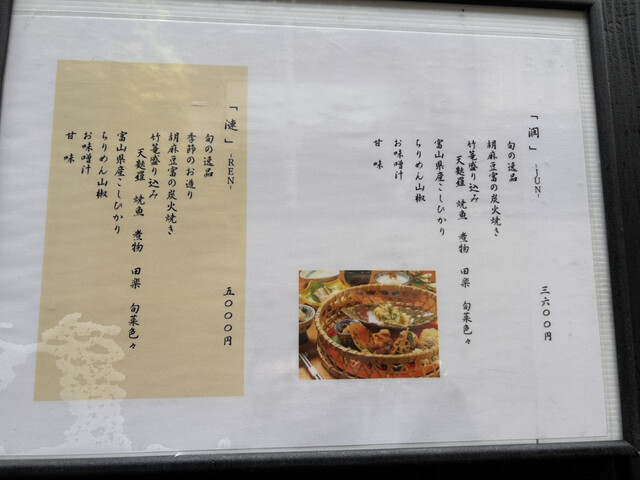 「潤」 -JUN-
三六〇〇円
旬の逸品
胡麻豆富の炭火焼き
竹篭盛り込み
天麩羅 焼魚 煮物 田楽 旬菜色々
富山県産こしひかり
ちりめん山椒
お味噌汁
甘味
「漣」 -REN-
五〇〇〇円
旬の逸品
季節のお造り
胡麻豆富の炭火焼き
竹篭盛り込み
天麩羅 焼魚 煮物 田楽 旬菜色々
富山県産こしひかり
ちりめん山椒
お味噌汁
甘味